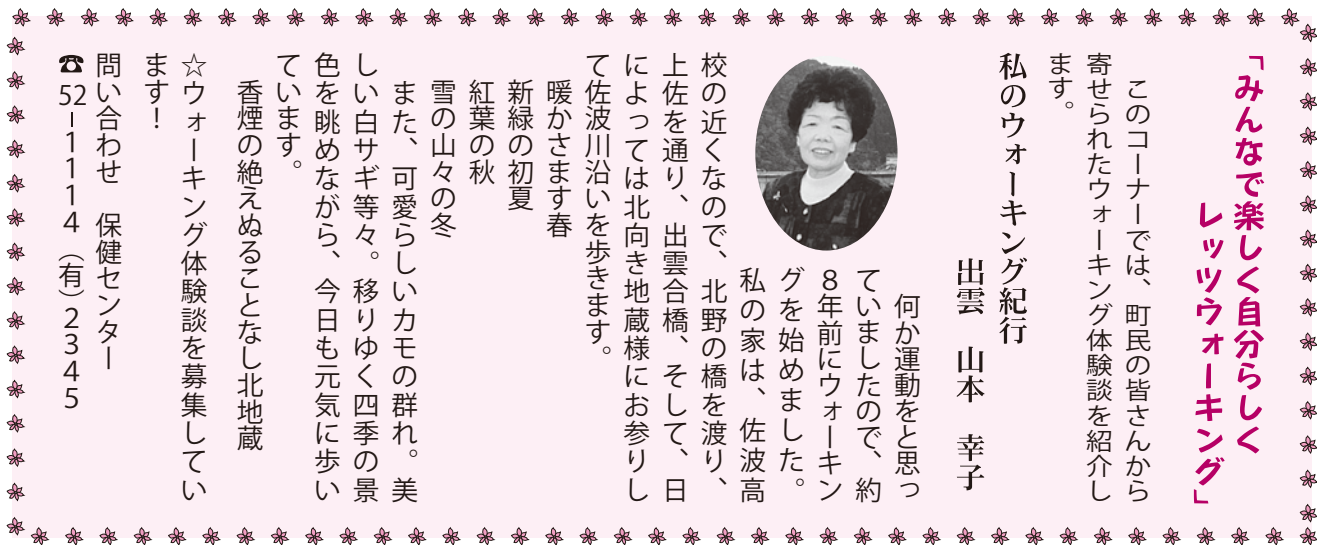 「みんなで楽しく自分らしく
レッツウォーキング」
このコーナーでは、町民の皆さんから
寄せられたウォーキング体験談を紹介し
ます。
私のウォーキング紀行
出雲　山本　幸子
何か運動をと思っ
ていましたので、約
８年前にウォーキン
グを始めました。
私の家は、佐波高
校の近くなので、北野の橋を渡り、
上佐を通り、出雲合橋、そして、日
によっては北向き地蔵様にお参りし
て佐波川沿いを歩きます。
暖かさます春
新緑の初夏
紅葉の秋
雪の山々の冬
また、可愛らしいカモの群れ。美
しい白サギ等々。移りゆく四季の景
色を眺めながら、今日も元気に歩い
ています。
香煙の絶えぬることなし北地蔵
☆ウォーキング体験談を募集してい
ます！
問い合わせ　保健センター
☎52－1114（有）2345